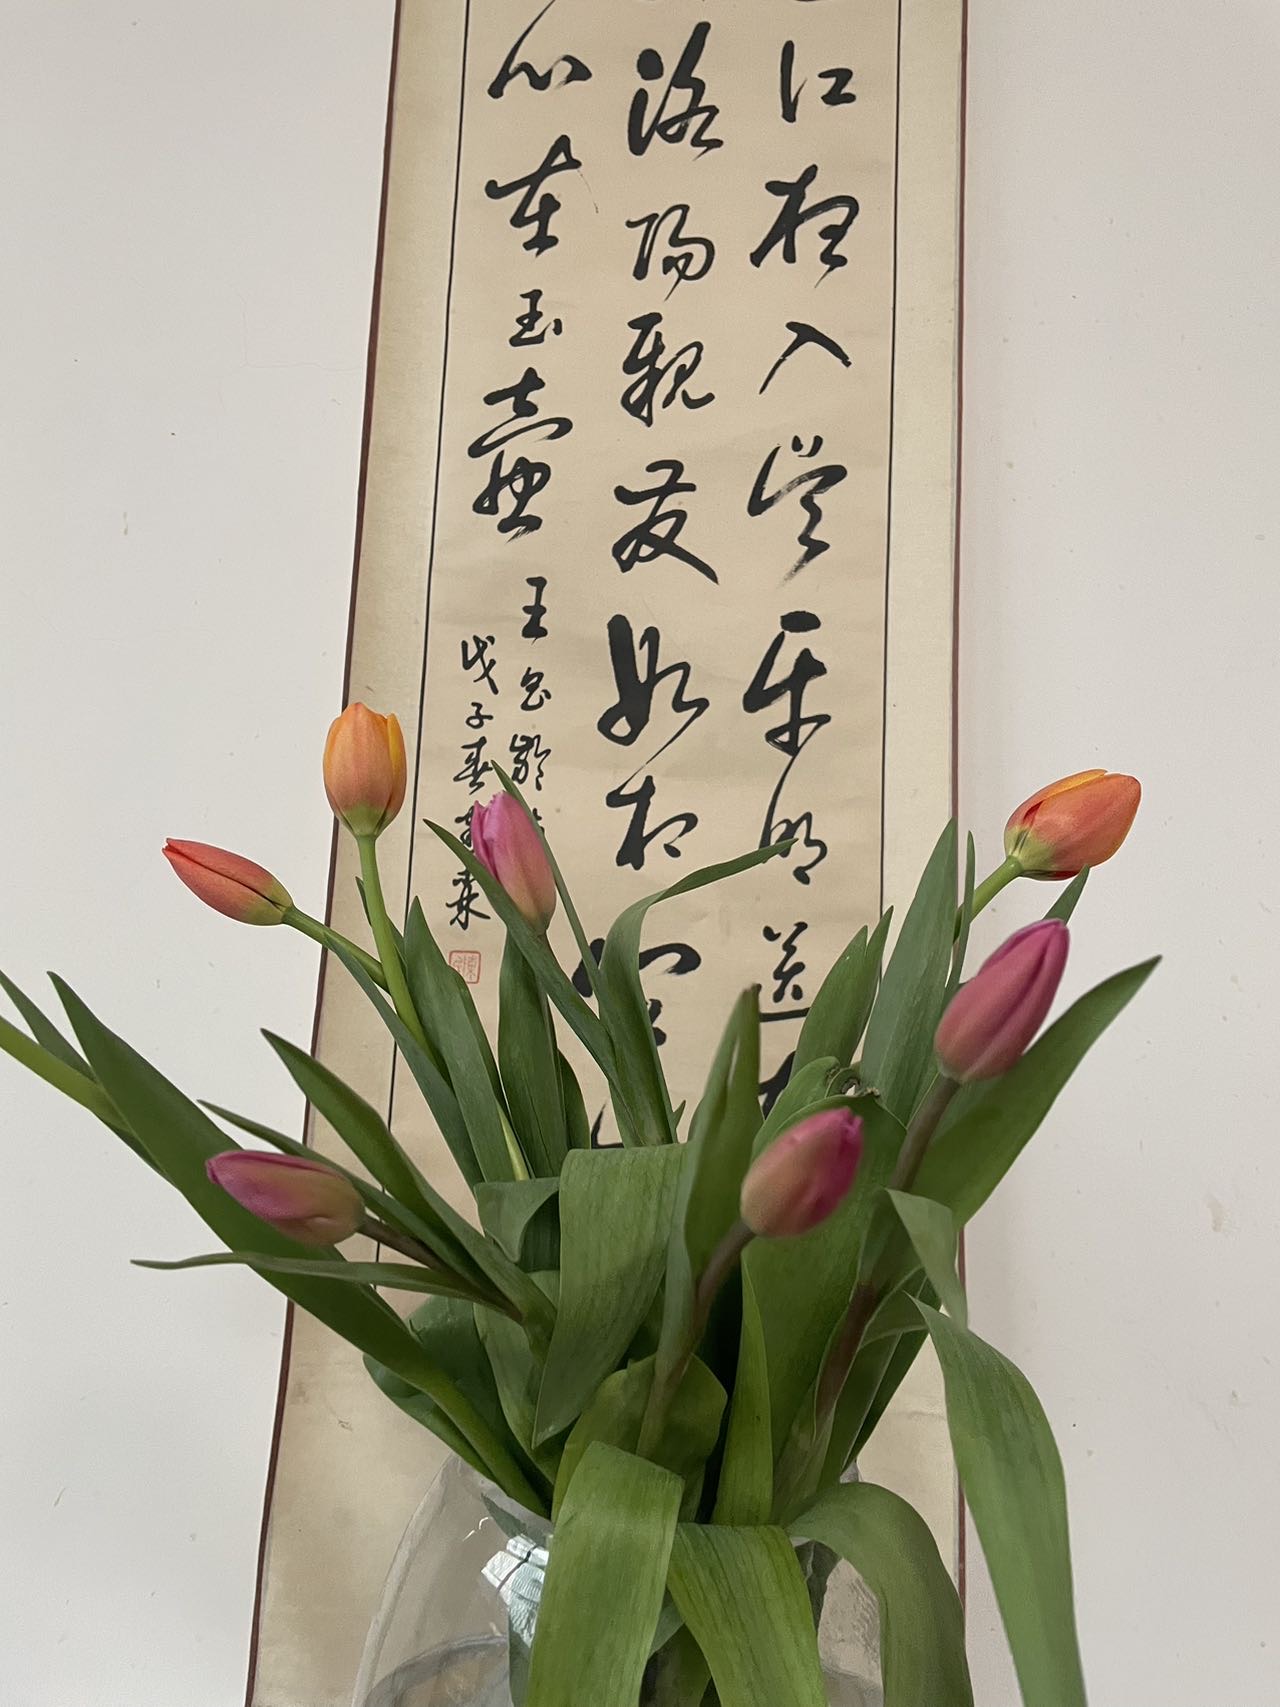 江夜入吴平明送
洛阳亲友如相
心在玉壶
王昌龄
戊子春